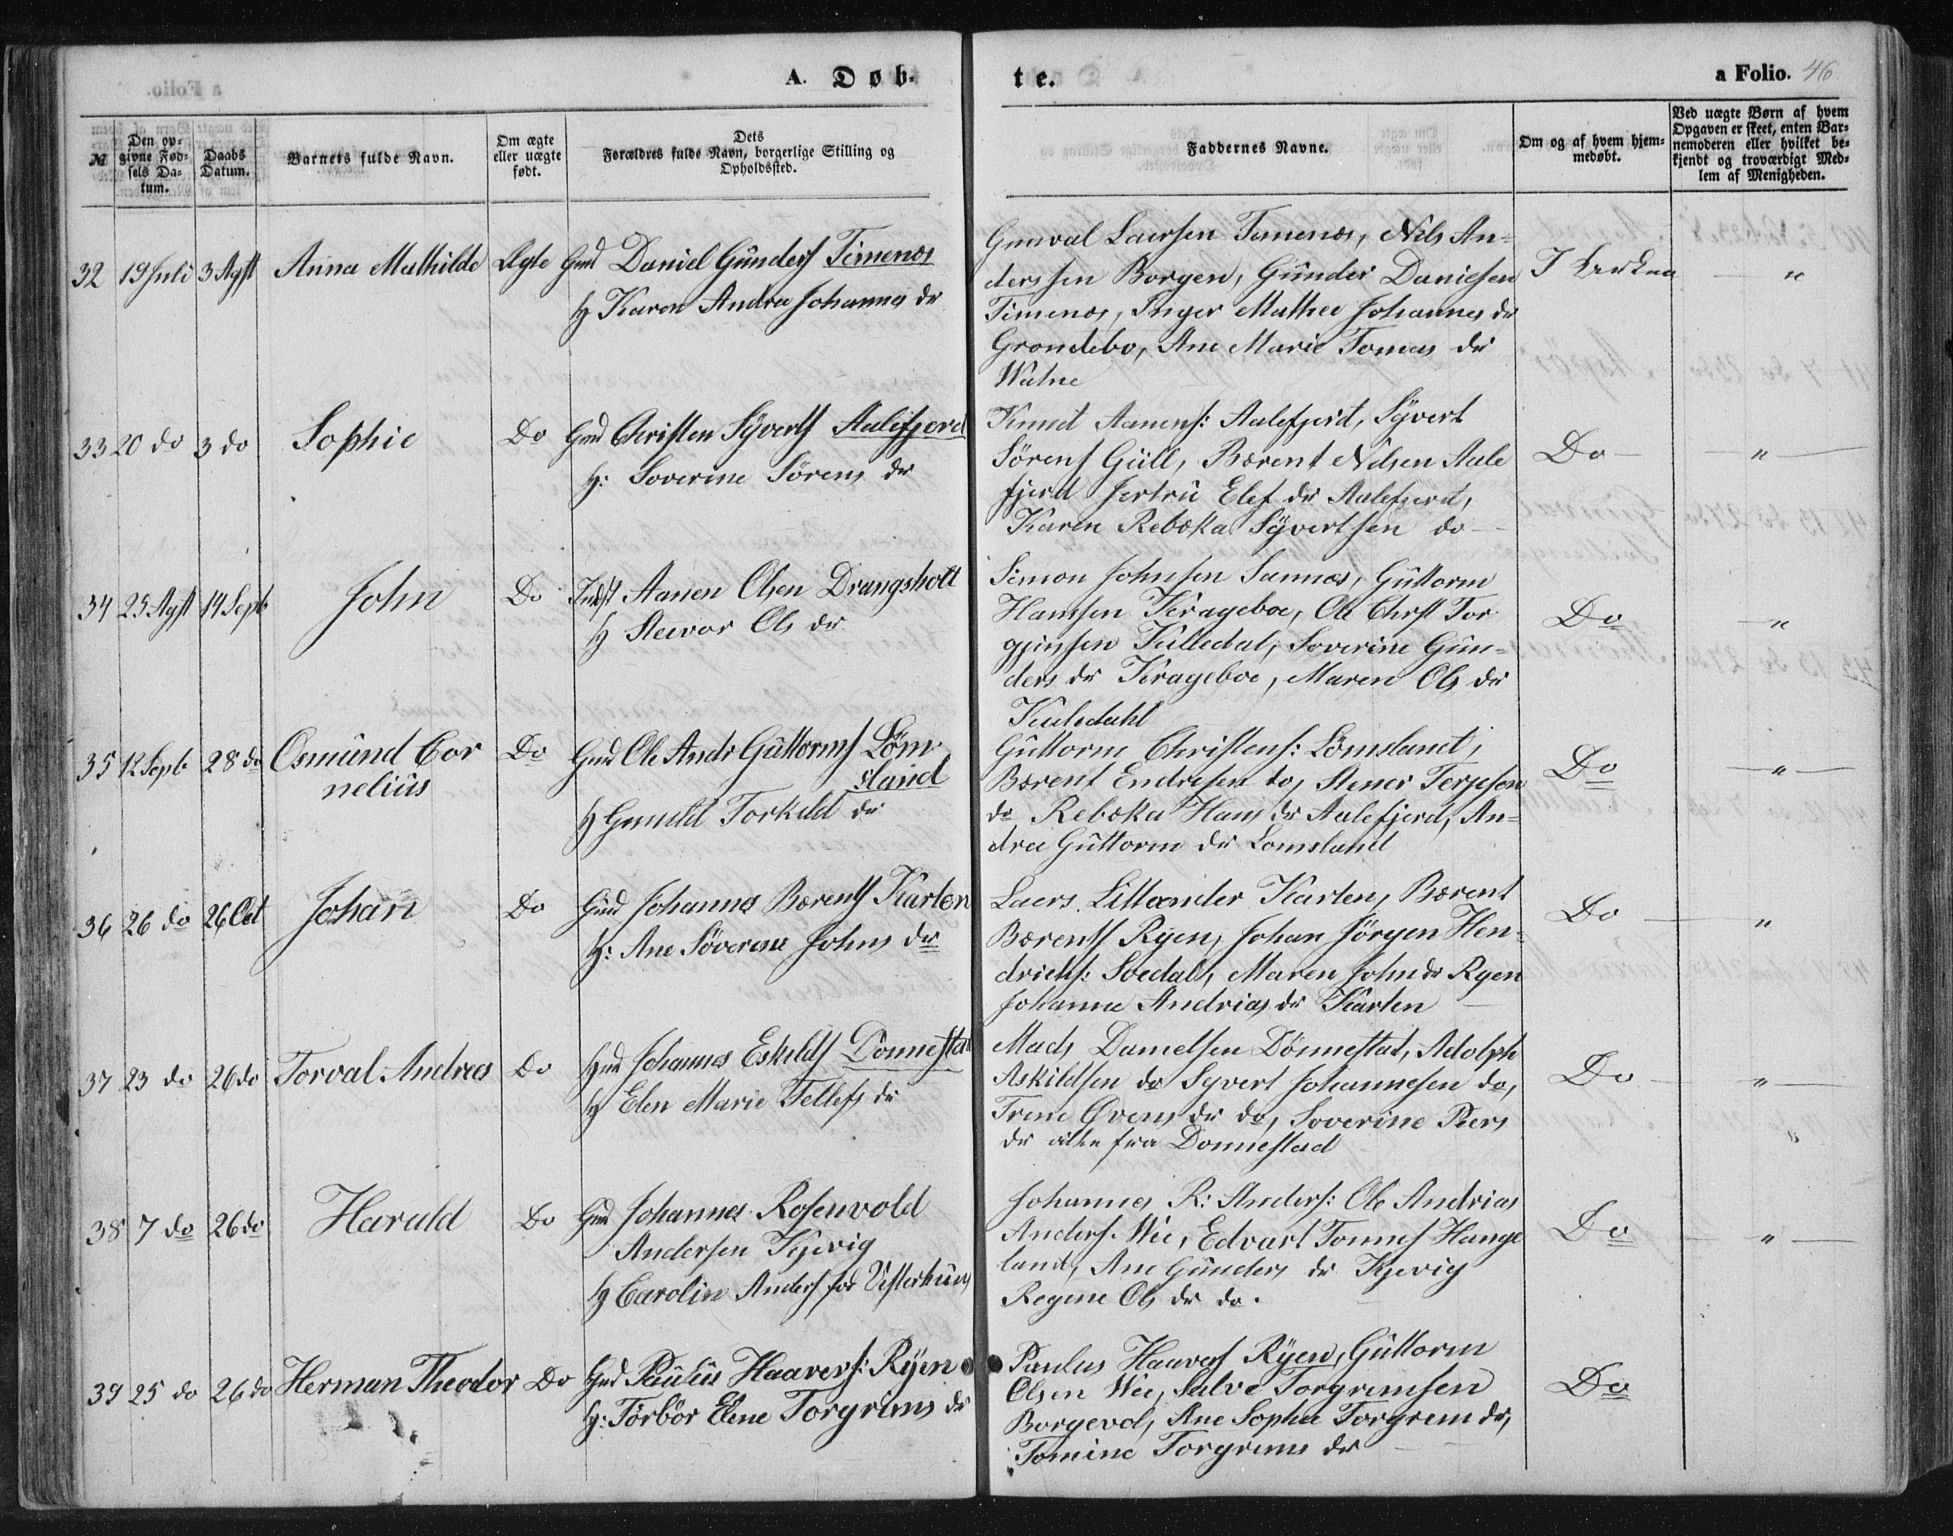 A. Døb-
te.
a Folio. 46
№
Den op-
givne Fød-
sels Da-
tum.
Daabs
Datum.
Barnets fulde Navn.
Om ægte
eller uægte
født.
Dets
Forældres fulde Navn, borgerlige Stilling og
Opholdssted.
Faddernes Navne.
Om og af hvem hjem-
medøbt.
Ved uægte Børn af hvem
Opgaven er skeet, enten Bar-
nemoderen eller hvilket be-
kjendt og troværdigt Med-
lem af Menigheden.
32 19 Juli 3 Agst Anna Mathilde Ægte Gmd Daniel Gunders Timenes
H Karen Andrea Johannes dr
Gunval Laersen Timenes, Nils An-
derssen Borgen, Gunder Danielsen
Timenes, Inger Mathea Johannes dr
Grondebo, Ane Marie Tomas dr
Watne
I Kirken "
33 20 do 3 do Sophie Do Gmd Christen Syverts Aalefjerd
H: Soverine Sörens dr
Knud Aanens: Aalefjerd, Syvert
Sørens Güll, Bærent Nilsen Aale
fjerd Jertru Elef dr Aalefjerd,
Karen Rebæka Syvertsen do
Do "
34 25 Agst 14 Sept John Do Indst Aanen Olsen Drangsholt
H Steevor Ols dr
Simon Johnsen Sannæs, Guttorm
Hansen Krageboe, Ole Chrst Tor
gjusen Kulledal, Soverine Gun-
ders dr Krageboe, Maren Ols dr
Kuledahl
Do "
35 12 Sept 28 do Osmund Cor
nelius
Do Gmd Ole Andr Guttorms Löm-
sland
H Gunild Torkild dr
Guttorm Christens: Lömsland,
Bærent Endresen do, Stener Terjesen
do Rebæka Hans dr Aalefjerd, An-
drea Guttorm dr Lomsland
Do "
36 26 do 26 Oct Johan Do Gmd Johannes Bærents Karten
H: Ane Söverene Johns dr
Laers Littænder Karten, Bærent
Bærents Ryen, Johan Jörgen Hen-
drichs: Soedal, Maren John dr Ryen
Johanne Andrias dr Karten
Do "
37 23 do 26 do Torval Andreas Do Gmd Johannes Eskilds Donnestad
H Elen Marie Tellefs dr
Mads Danielsen Dönnestad, Adolph
Askildsen do Syvert Johannesen do,
Trine Övens dr do, Soverine Peers
dr alle fra Donnestad
Do "
38 7 do 26 do Harald Do Gmd Johannes Rosenvold
Andersen Kjevig
H Carolin Anders for Vesterhuus
Johannes R: Anders: Ole Andrias
Anders. Wee, Edvart Tonnes Hange
land, Ane Gunders dr Kjevig
Regine Ols dr do.
Do "
39 25 do 26 do Herman Theodor Do Gmd Paulus Haavers: Ryen
H: Törbör Elene Torgrims dr
Paulus Haavers Ryen, Guttorm
Olsen Wee, Salve Torgrimsen
Borgevol, Ane Sophie Torgrem dr,
Tomine Torgrims dr
Do